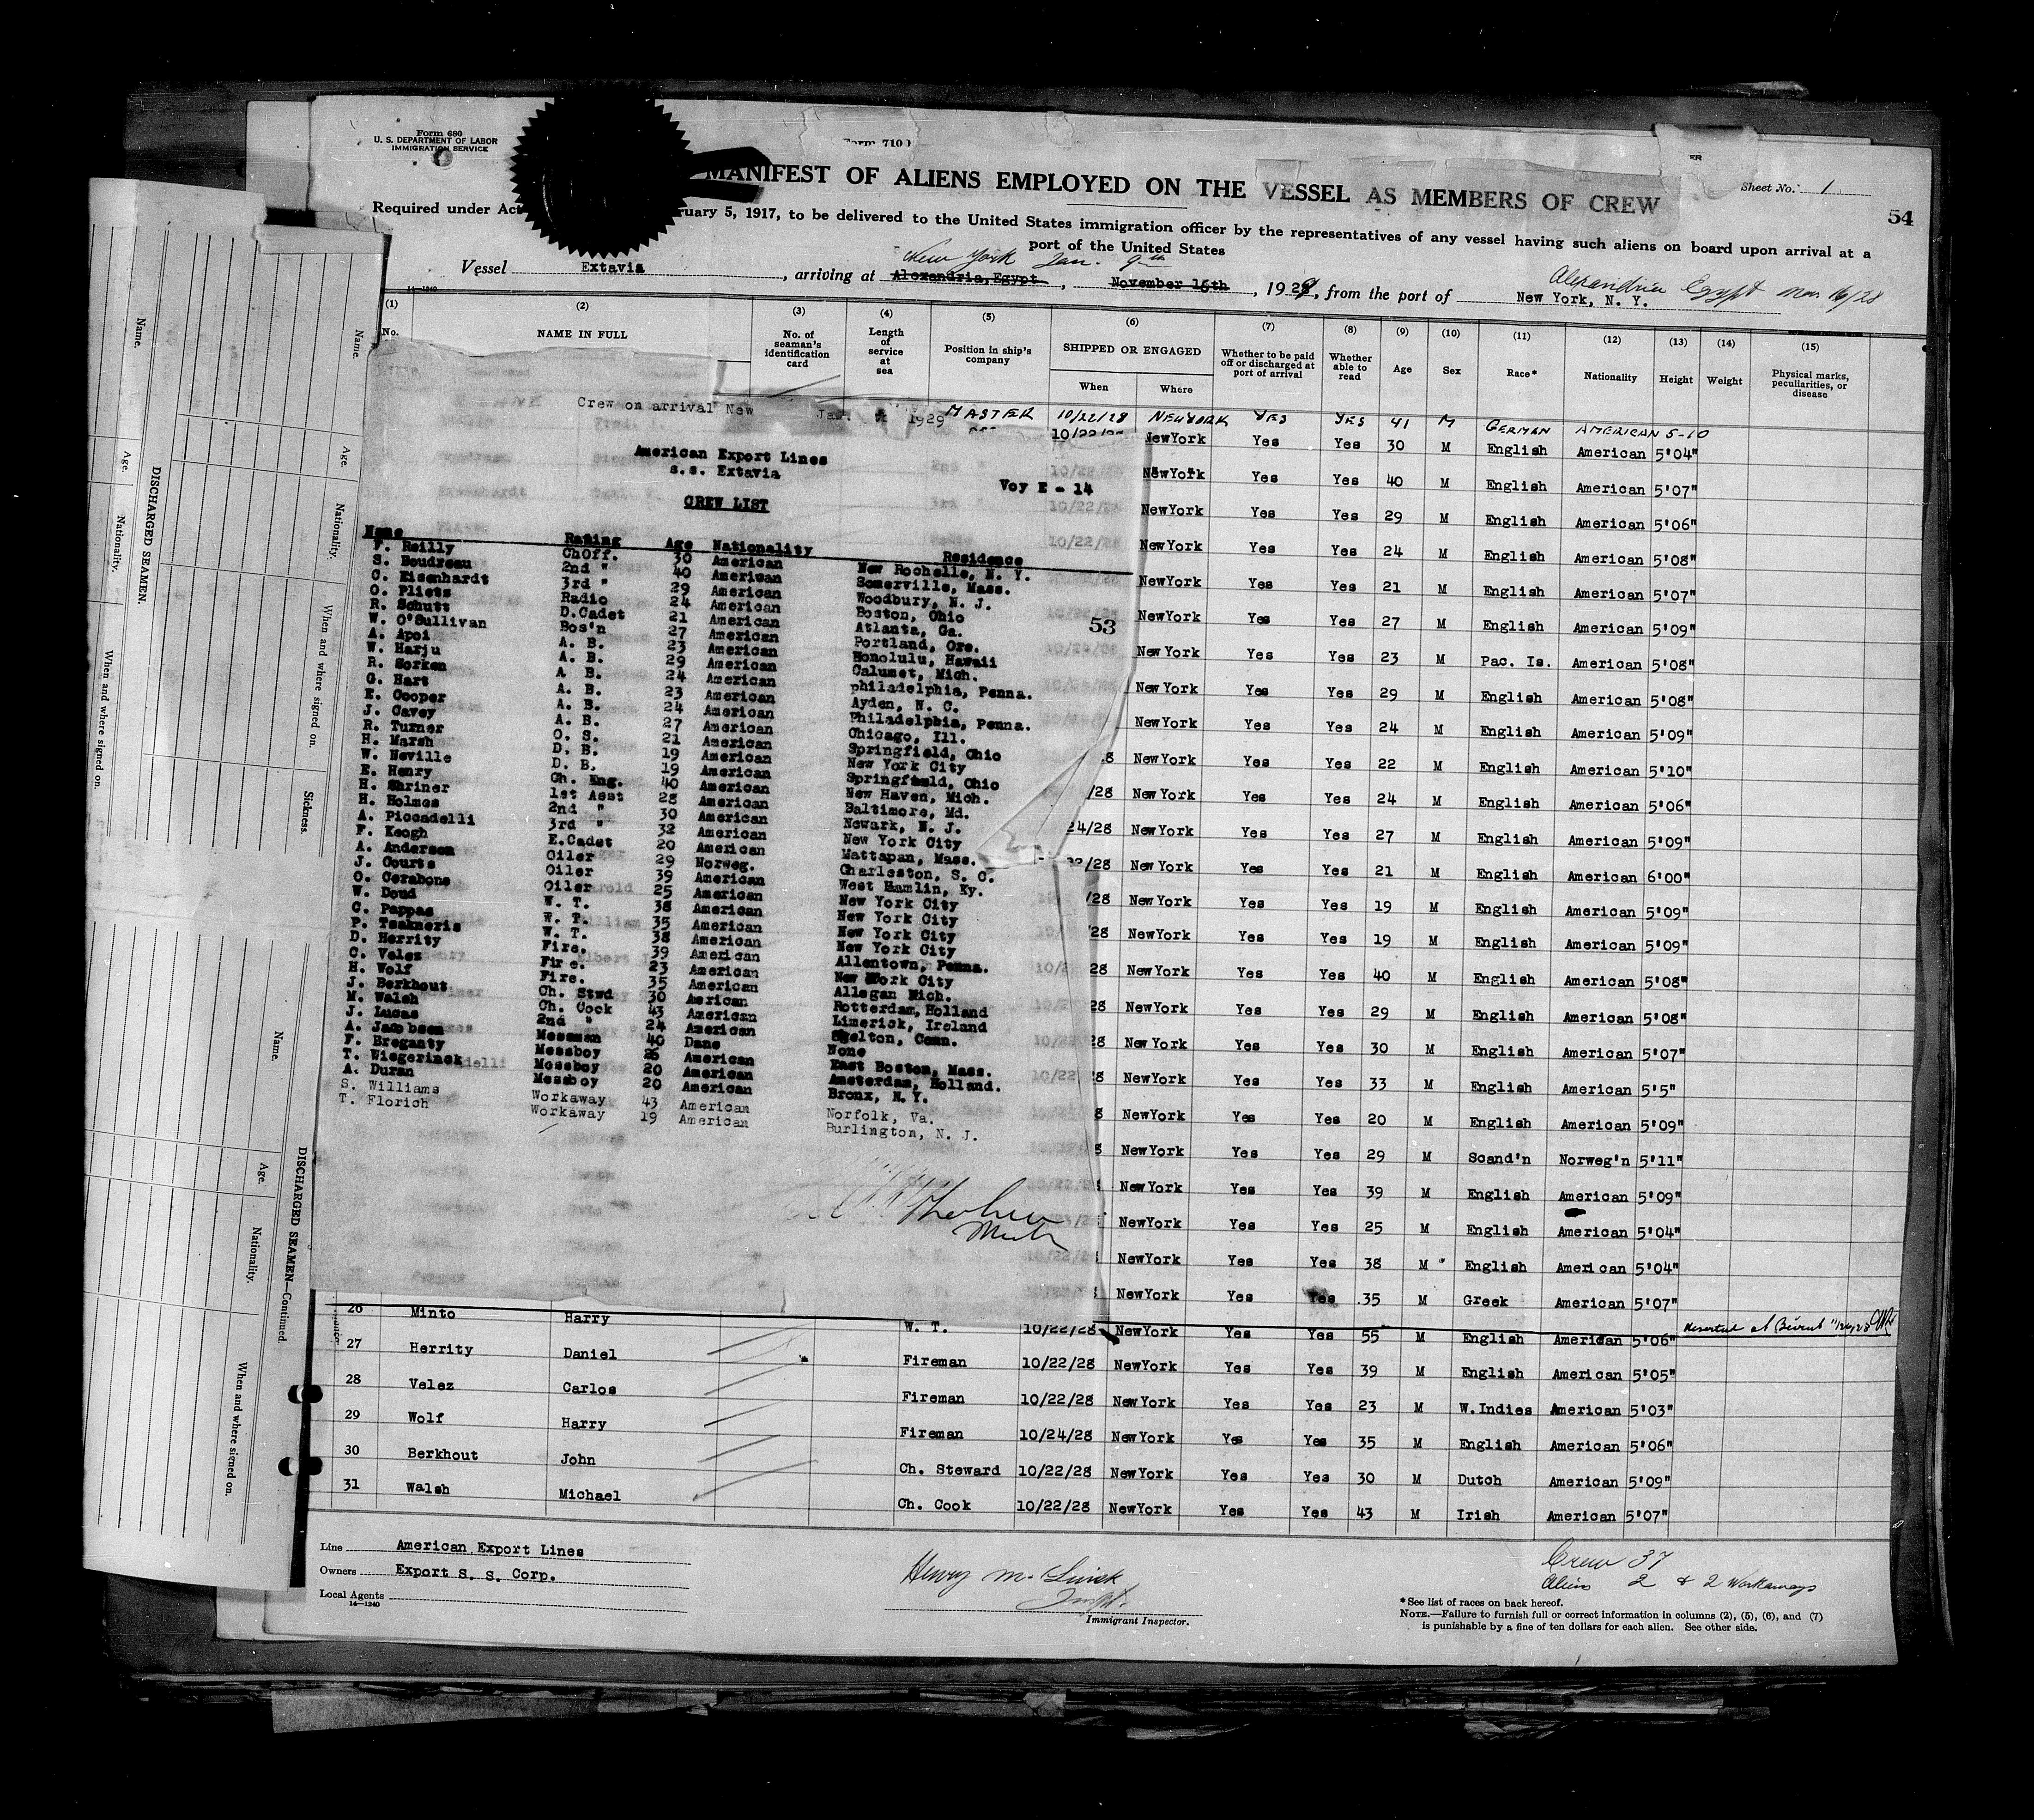 Form 680
U. S. DEPARTMENT OF LABOR
IMMIGRATION SERVICE
Form 7100
MANIFEST OF ALIENS EMPLOYED ON THE VESSEL AS MEMBERS OF CREW
Sheet No. 1
54
Required under Act ruary 5, 1917, to be delivered to the United States immigration officer by the representatives of any vessel having such aliens on board upon arrival at a
port of the United States
New York Jan. 9th Alexandria Egypt
Vessel Extavia, arriving at Alexandria, Egypt, November 15th, 1929, from the port of New York, N. Y.
14—1240
(1) (2) (3) (4) (5) (6) (7) (8) (9) (10) (11) (12) (13) (14) (15)
No. NAME IN FULL No. of seaman's identification card Length of service at sea Position in ship's company SHIPPED OR ENGAGED When Where Whether to be paid off or discharged at port of arrival Whether able to read Age Sex Race* Nationality Height Weight Physical marks, peculiarities, or disease
MASTER 10/22/28 NEW YORK YES YES 41 M GERMAN AMERICAN 5-10
Crew on arrival New Jan. 1929
American Export Lines
s.s. Extavia
Voy E - 14
CREW LIST
Name Rating Age Nationality Residence
F. Reilly Choff. 30 American New Rochelle, N. Y.
S. Boudreau 2nd " 40 American Somerville, Mass.
C. Eisenhardt 3rd " 29 American Woodbury, N. J.
O. Pliets Radio 24 American Boston, Ohio
R. Schutt D.Cadet 21 American Atlanta, Ga.
W. O'Sullivan Bos'n 27 American Portland, Ore.
A. Apoi A. B. 23 American Honolulu, Hawaii
W. Harju A. B. 29 American Calumet, Mich.
R. Sorken A B. 24 American philadelphia, Penna.
G. Hart A. B. 23 American Ayden, N. C.
E. Cooper A. B. 24 American Philadelphia, Penna.
J. Cavey A. B. 27 American Chicago, Ill.
R. Turner O. S. 21 American Springfield, Ohio
H. Marsh D. B. 19 American New York City
W. Neville D. B. 19 American Springfield, Ohio
E. Henry Ch. Eng. 40 American New Haven, Mich.
H. Shriner 1st Asst 28 American Baltimore, Md.
H. Holmes 2nd " 30 American Newark, N. J.
A. Piccadelli 3rd " 32 American New York City
F. Keogh E.Cadet 20 American Mattapan, Mass.
A. Anderson Oiler 29 Norweg. Charleston, S. C.
J. Courts Oiler 39 American West Hamlin, Ky.
O. Cerabone Oiler 25 American New York City
W. Doud W. T. 38 American New York City
C. Pappas W. T. 35 American New York City
P. Tsakneris W. T. 38 American New York City
D. Herrity Fire. 39 American Allentown, Penna.
C. Velez Fire. 23 American New York City
H. Wolf Fire. 35 American Allegan Mich.
J. Berkhout Ch. Stwd 30 Aerican Rotterdam, Holland
M. Walsh Ch. Cook 43 American Limerick, Ireland
J. Lucas 2nd " 24 American Shelton, Conn.
A. Jacobsen Messman 40 Dane None
F. Breganty Messboy 26 American East Boston, Mass.
T. Wiegerinck Messboy 20 American Amsterdam, Holland.
A. Duran Messboy 20 American Bronx, N.Y.
S. Williams Workaway 43 American Norfolk, Va.
T. Florich Workaway 19 American Burlington, N. J.
53
10/22/28 NewYork Yes Yes 30 M English American 5'04"
NewYork Yes Yes 40 M English American 5'07"
NewYork Yes Yes 29 M English American 5'06"
NewYork Yes Yes 24 M English American 5'08"
NewYork Yes Yes 21 M English American 5'07"
NewYork Yes Yes 27 M English American 5'09"
NewYork Yes Yes 23 M Pac. Is. American 5'08"
NewYork Yes Yes 29 M English American 5'08"
NewYork Yes Yes 24 M English American 5'09"
8 NewYork Yes Yes 22 M English American 5'10"
/28 NewYork Yes Yes 24 M English American 5'06"
24/28 NewYork Yes Yes 27 M English American 5'09"
/28 NewYork Yes Yes 21 M English American 6'00"
/28 NewYork Yes Yes 19 M English American 5'09"
28 NewYork Yes Yes 19 M English American 5'09"
28 NewYork Yes Yes 40 M English American 5'08"
28 NewYork Yes Yes 29 M English American 5'08"
28 NewYork Yes Yes 30 M English American 5'07"
8 NewYork Yes Yes 33 M English American 5'5"
8 NewYork Yes Yes 20 M English American 5'09"
8 NewYork Yes Yes 29 M Scand'n Norweg'n 5'11"
NewYork Yes Yes 39 M English American 5'09"
NewYork Yes Yes 25 M English American 5'04"
NewYork Yes Yes 38 M English American 5'04"
NewYork Yes Yes 35 M Greek American 5'07"
26 Minto Harry W. T. 10/22/28 NewYork Yes Yes 55 M English American 5'06" Deserted at Beirut
27 Herrity Daniel Fireman 10/22/28 NewYork Yes Yes 39 M English American 5'05"
28 Velez Carlos Fireman 10/22/28 NewYork Yes Yes 23 M W.Indies American 5'03"
29 Wolf Harry Fireman 10/24/28 NewYork Yes Yes 35 M English American 5'06"
30 Berkhout John Ch. Steward 10/22/28 NewYork Yes Yes 30 M Dutch American 5'09"
31 Walsh Michael Ch. Cook 10/22/28 NewYork Yes Yes 43 M Irish American 5'07"
Line American Export Lines
Owners Export S. S. Corp.
Local Agents
14—1240
Henry
Immigrant Inspector.
Crew 37
Aliens 2 & 2 Workaways
* See list of races on back hereof.
NOTE.—Failure to furnish full or correct information in columns (2), (5), (6), and (7)
is punishable by a fine of ten dollars for each alien. See other side.
DISCHARGED SEAMEN.
Name. Age. Nationality. When and where signed on.
Name. Age. Nationality. When and where signed on. Sickness.
DISCHARGED SEAMEN—Continued
Name. Age. Nationality. When and where signed on.